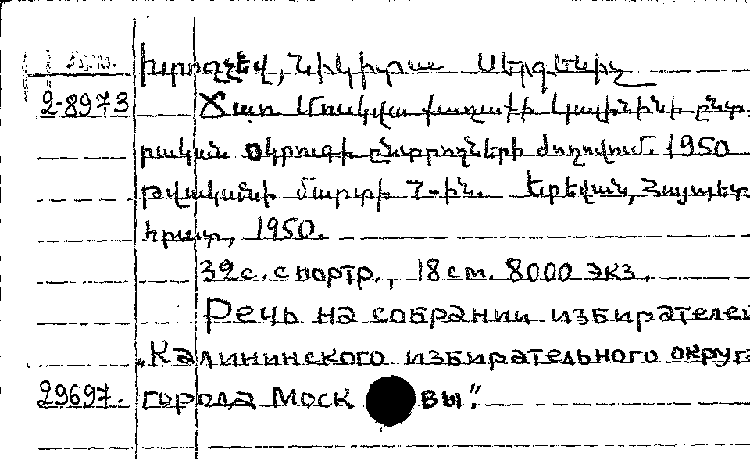 Խրուշչև, Նիկիտա Սերգեևիչ
2-8973 Ճառ Մոսկվա քաղաքի Կալինինի ընտ-
րական օկրուգի ընտրողների ժողովում. 1950
թվականի մարտի 7-ին. Երևան, Հայպետ-
հրատ, 1950.
39с. с портр., 18см. 8000 экз.
Речь на собрании избирателей
"Калининского избирательного округа
29697. города Москвы".